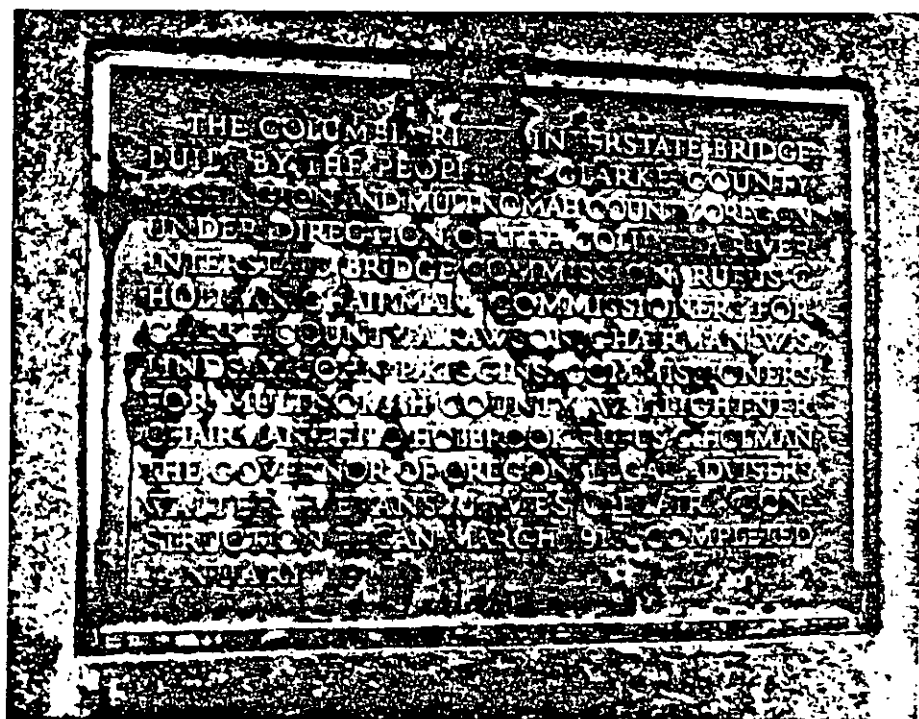 THE COLUMBIA RIVER INTERSTATE BRIDGE
BUILT BY THE PEOPLE OF CLARKE COUNTY
WASHINGTON AND MULTNOMAH COUNTY OREGON
UNDER DIRECTION OF THE COLUMBIA RIVER
INTERSTATE BRIDGE COMMISSION RUFUS C
HOLMAN CHAIRMAN COMMISSIONERS FOR
CLARKE COUNTY A RAWSON CHAIRMAN W S
LINDSAY JOHN P KIGGINS COMMISSIONERS
FOR MULTNOMAH COUNTY W L LIGHTNER
CHAIRMAN PHILO HOLBROOK RUFUS C HOLMAN
THE GOVERNOR OF OREGON LEGAL ADVISERS
WALTER H EVANS JAMES O BLAIR CON-
STRUCTION BEGAN MARCH COMPLETED
JANUARY